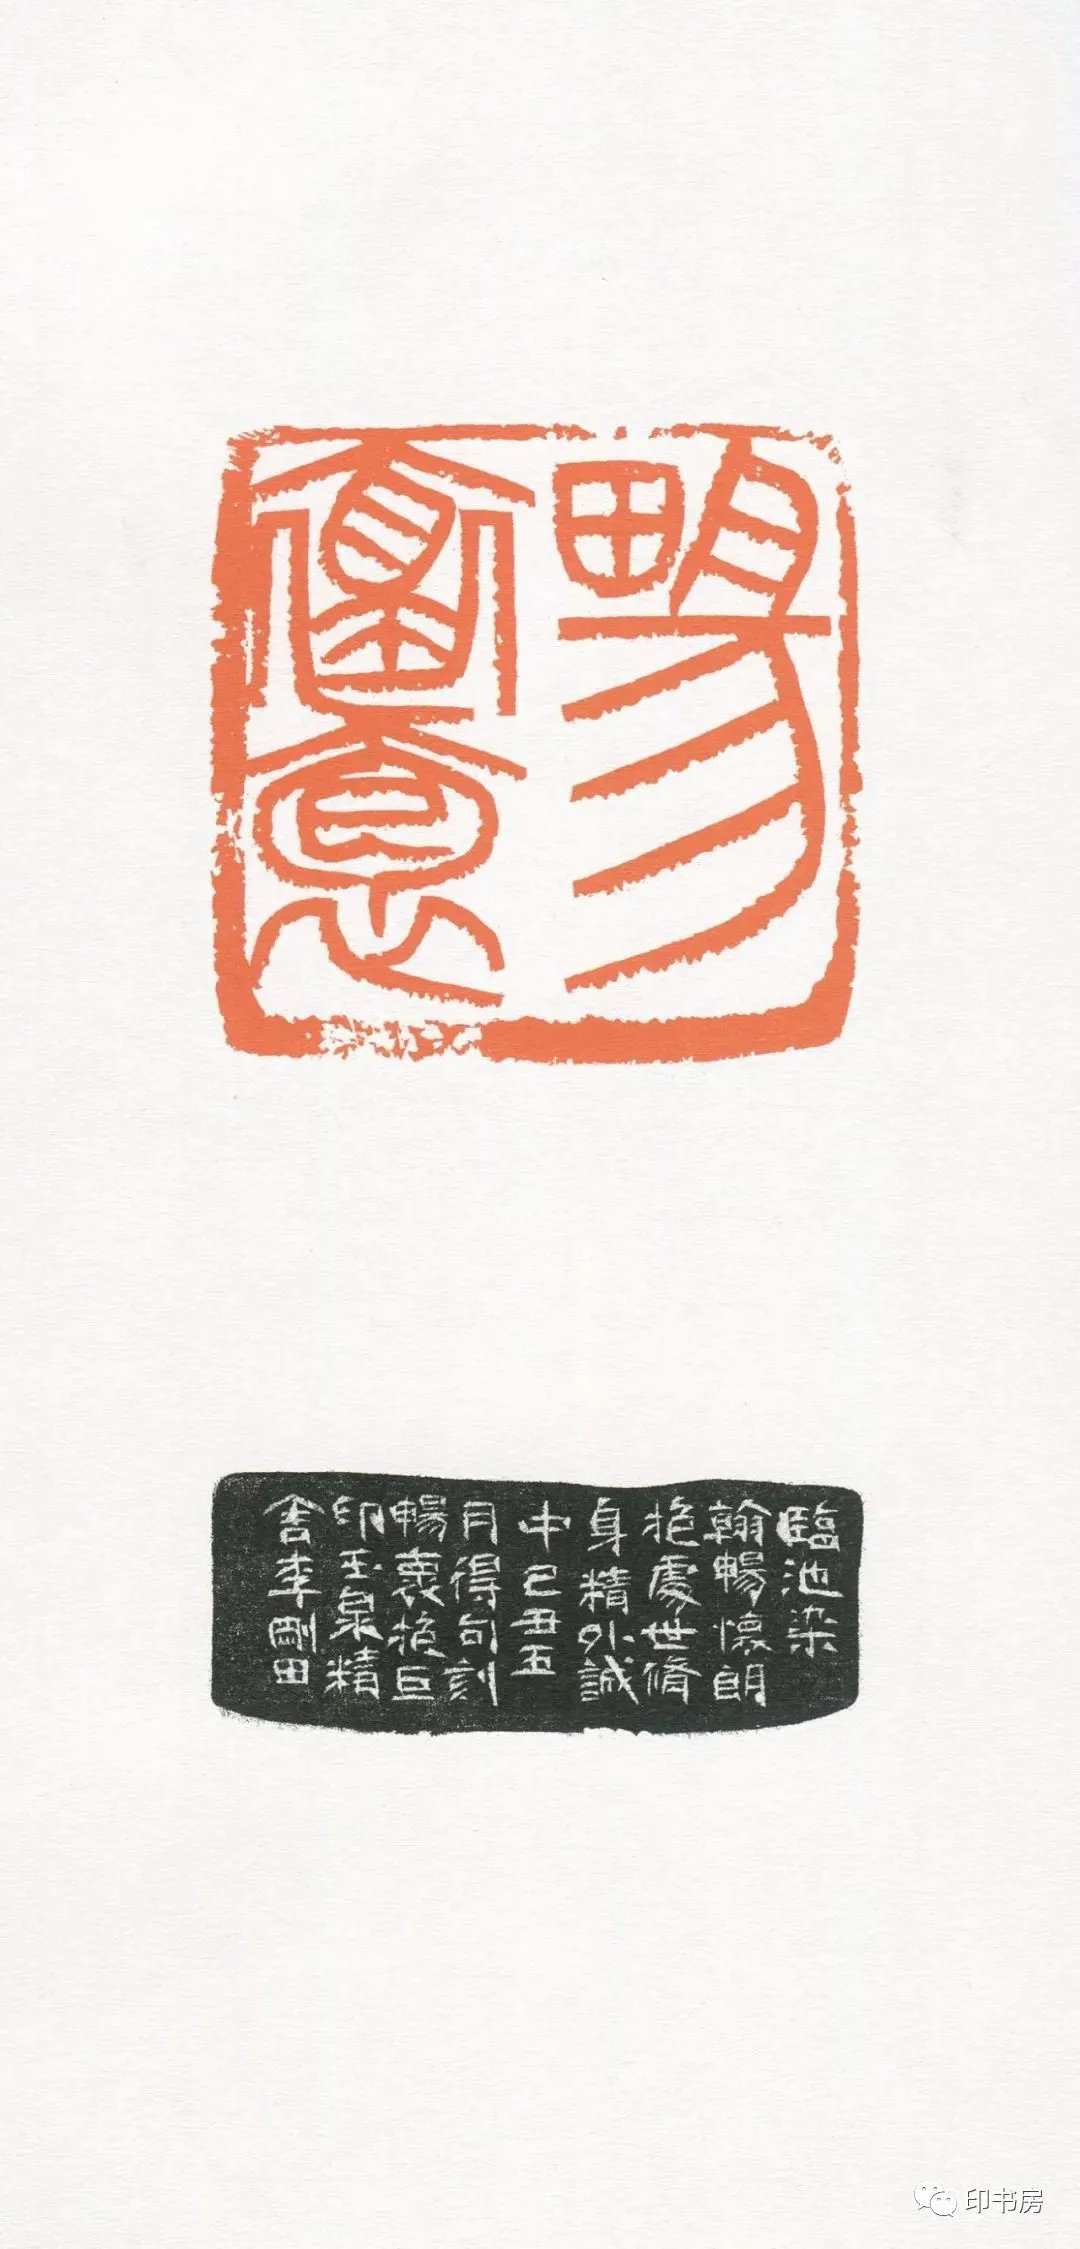 畼
褱袌
臨池染
翰暢懷朗
抱處世脩
身精外誠
中己丑五
月得句刻
暢褱抱巨
印玉泉精
舍李剛田
印书房